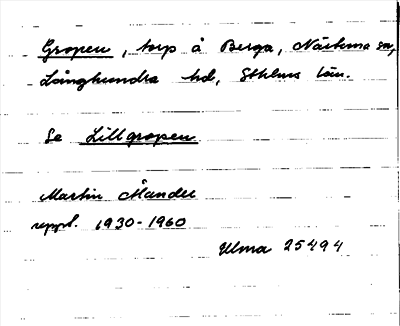 Gropen, torp å Berga, Närtuna sn,
Långhundra hd, Sthlms län.
Se Lillgropen
Martin Ålander
uppt. 1930-1960
Ulma 25494